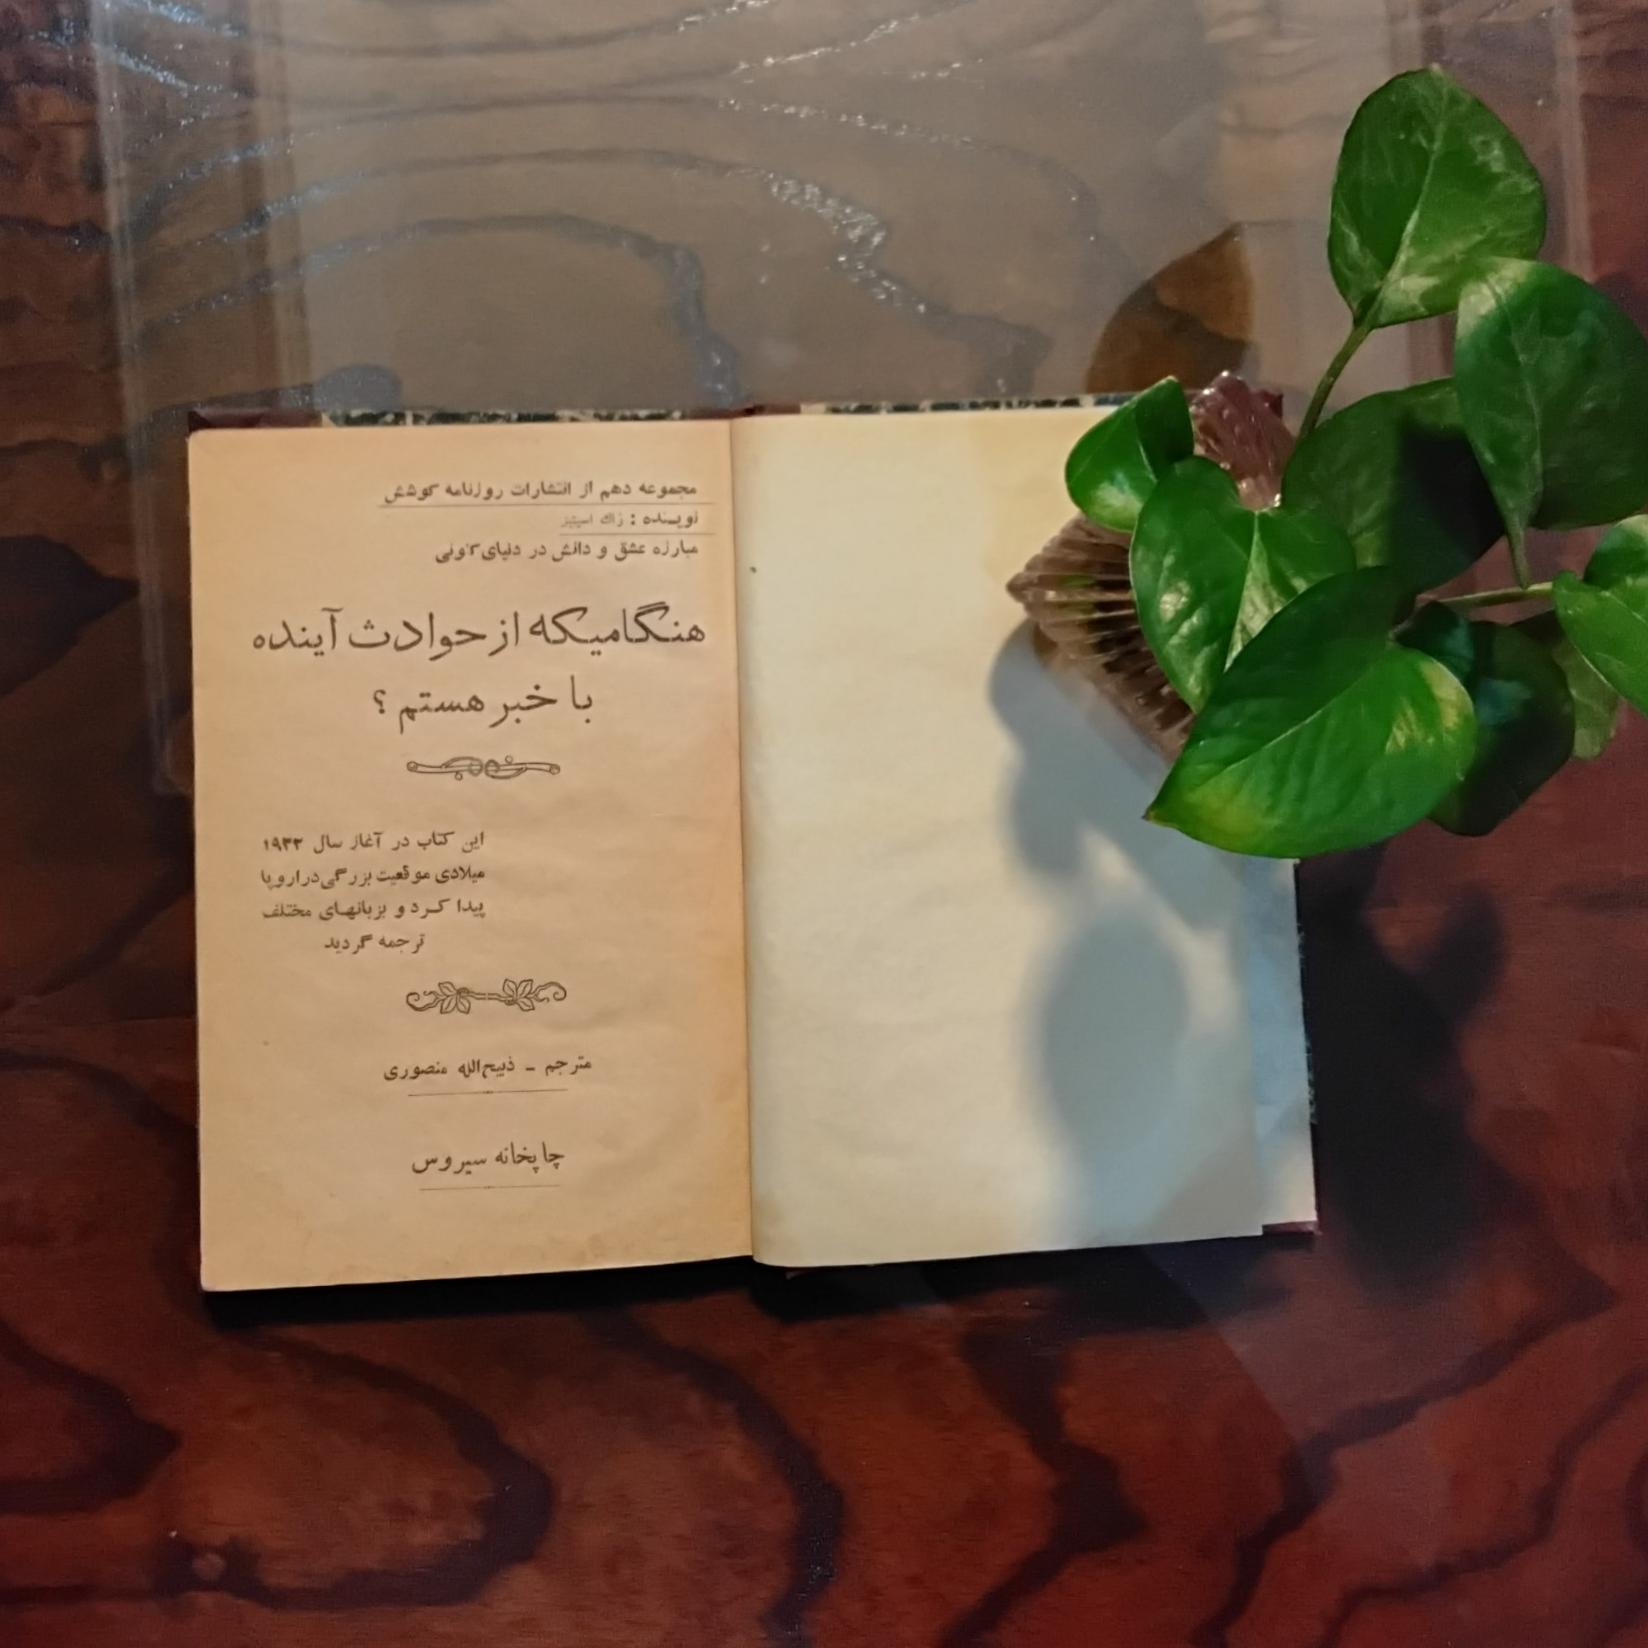 مجموعه دهم از انتشارات روزنامه کوشش
نویسنده : ژاك اسپیتز
مبارزه عشق و دانش در دنیای کنونی
هنگامیکه از حوادث آینده
با خبر هستم ؟
این کتاب در آغاز سال ۱۹۳۳
میلادی موقعیت بزرگی در اروپا
پیدا کرد و بزبانهای مختلف
ترجمه گردید
مترجم - ذبیح‌الله منصوری
چاپخانه سیروس